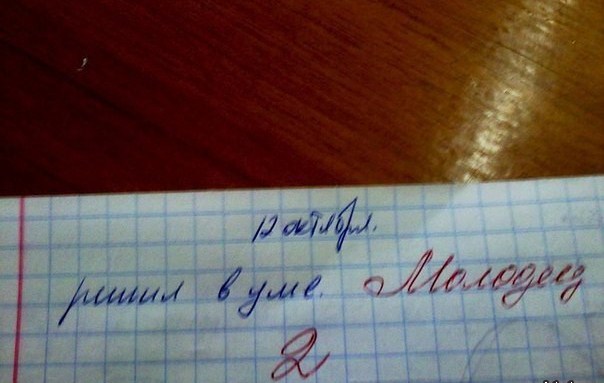 12 октября.
решил в уме. Молодец
2